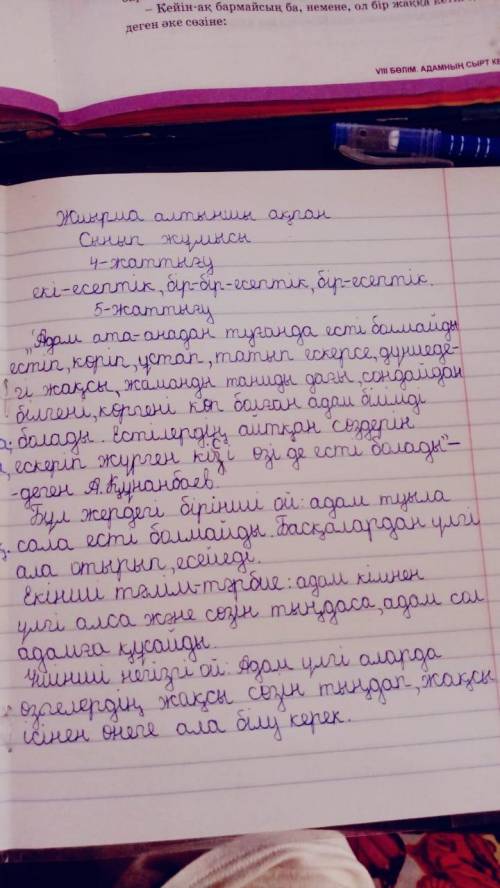 – Кейін-ақ бармайсың ба, немене, ол бір жаққа
деген әке сөзіне:
VIII БӨЛІМ. АДАМНЫҢ СЫРТ КЕ
Жиырма алтыншы ақпан
Сынып жұмысы
4-жаттығу
екі-есептік, бір-бір-есептік, бір-есептік.
5-жаттығу
"Адам ата-анадан туғанда есті болмайды
естіп, көріп, ұстап, татып ескерсе, дүниеде-
гі жақсы, жаманды таниды дағы, сондайдан
білгені, көргені көп болған адам білімді
болады. Естілердің айтқан сөздерін
ескеріп жүрген кісі өзі де есті болады"-
-деген А.Құнанбаев.
Бұл жердегі бірінші ой: адам туыла
сала есті болмайды. Басқалардан үлгі
ала отырып, есейеді.
Екінші тәлім-тәрбие: адам кімнен
үлгі алса және сөзін тыңдаса, адам сол
адамға құсайды.
Үшінші негізгі ой: Адам үлгі аларда
өзгелердің жақсы сөзін тыңдап, жақсы
ісінен өнеге ала білу керек.